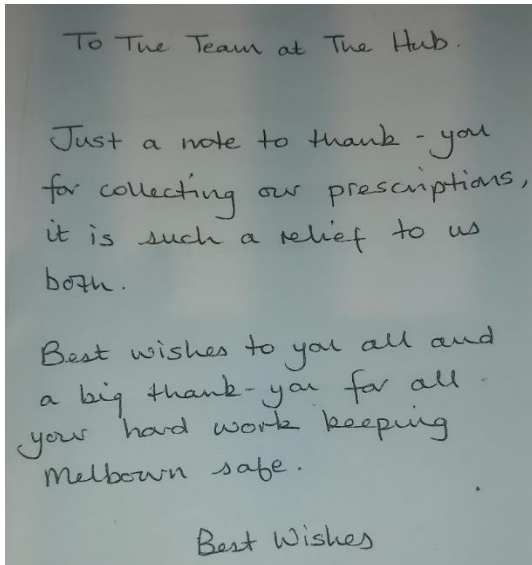 To The Team at The Hub.
Just a note to thank-you
for collecting our prescriptions,
it is such a relief to us
both.
Best wishes to you all and
a big thank-you for all
your hard work keeping
Melbourn safe.
Best Wishes